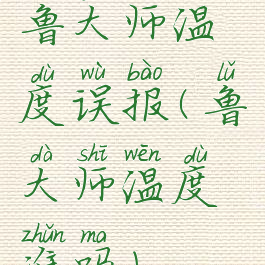 鲁大师温
dù wù bào lǔ
度误报(鲁
dà shī wēn dù
大师温度
zhǔn ma
准吗)